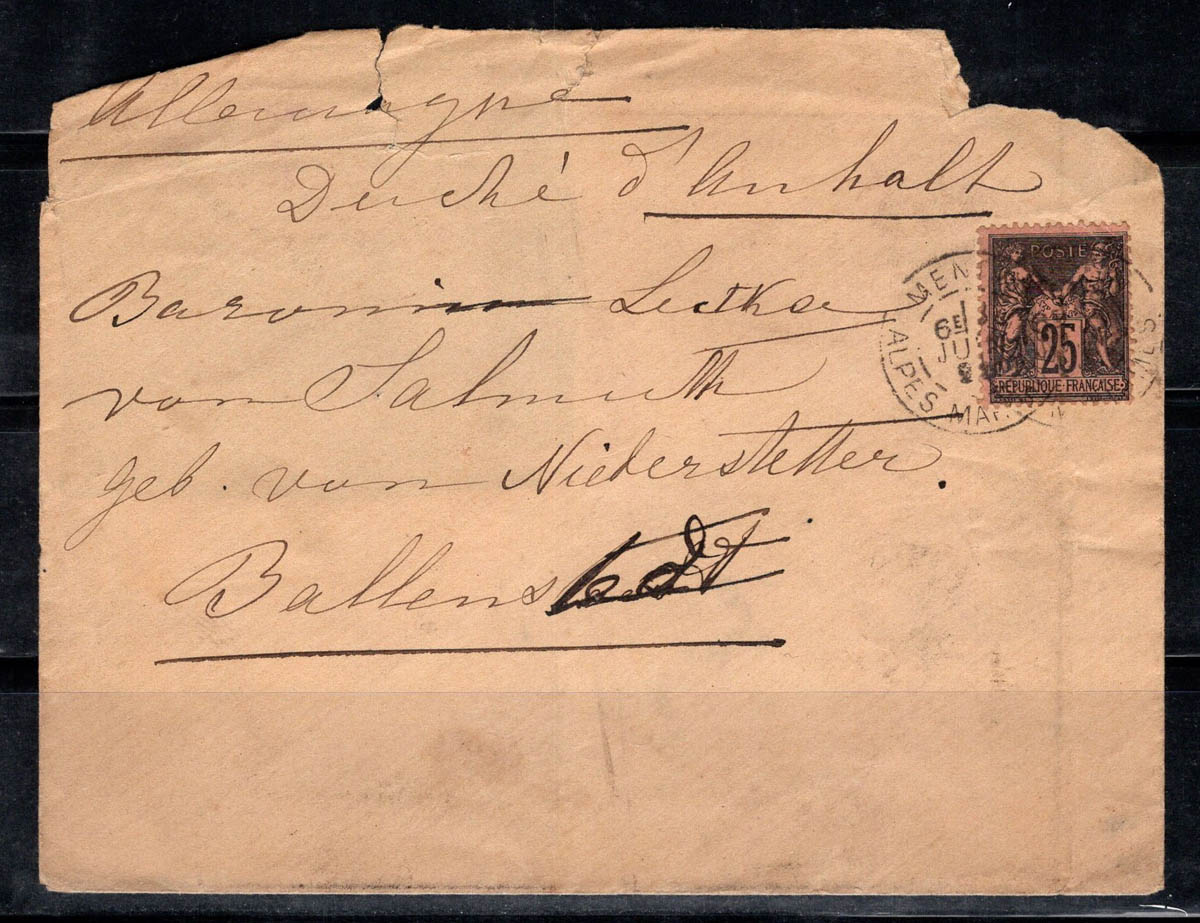 Allemagne
Duché d'Anhalt
Baronin
von Salmuth
geb. von Niederstetter.
Ballenstedt
POSTE
25
RÉPUBLIQUE FRANÇAISE
MEN
6E
JU
ALPES MAR